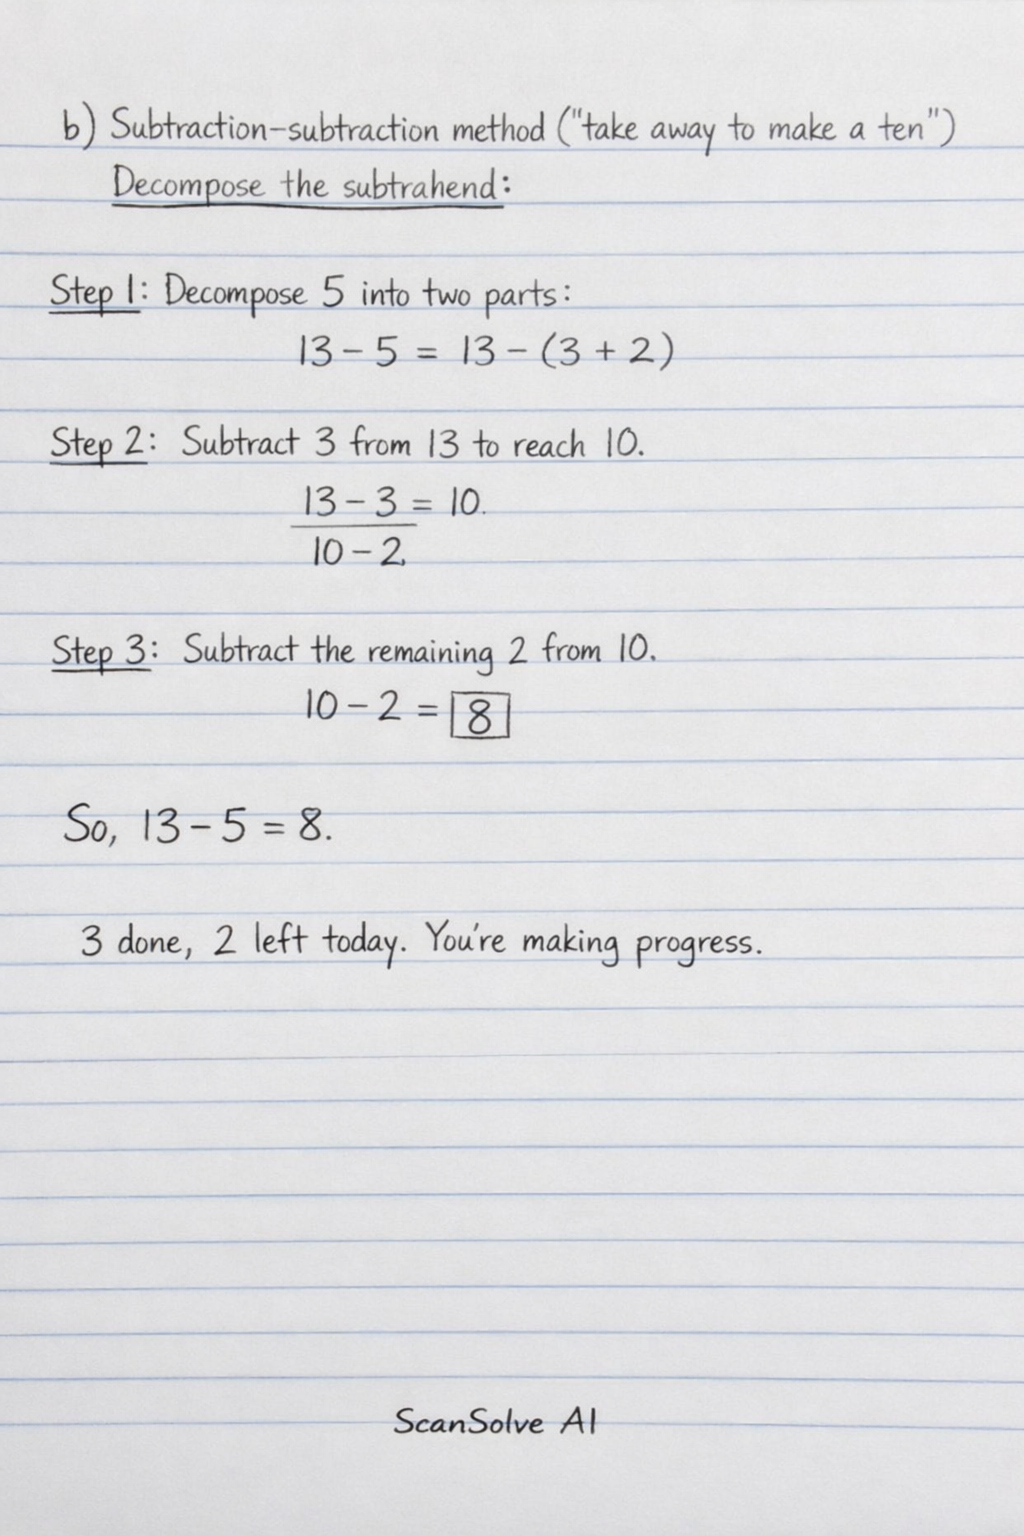 b) Subtraction-subtraction method ("take away to make a ten")
Decompose the subtrahend:
Step 1: Decompose 5 into two parts:
13 - 5 = 13 - (3 + 2)
Step 2: Subtract 3 from 13 to reach 10.
13 - 3 = 10.
10 - 2.
Step 3: Subtract the remaining 2 from 10.
10 - 2 = 8
So, 13 - 5 = 8.
3 done, 2 left today. You're making progress.
ScanSolve AI